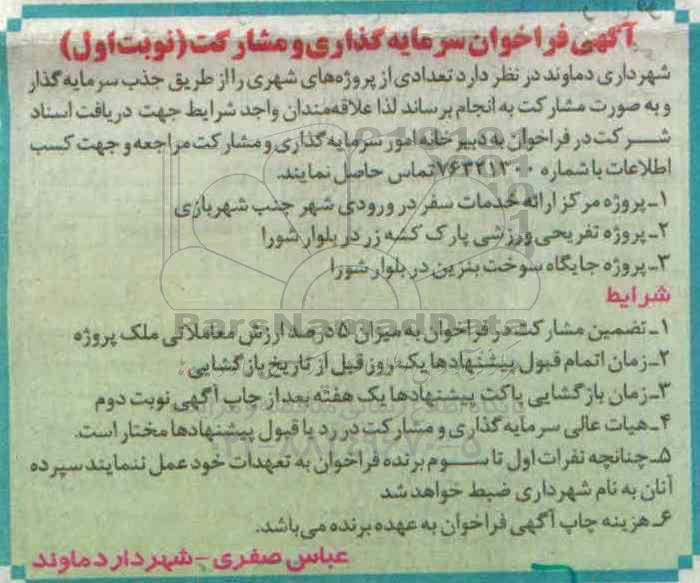 آگهی فراخوان سرمایه گذاری و مشارکت (نوبت اول)
شهرداری دماوند در نظر دارد تعدادی از پروژه‌های شهری را از طریق جذب سرمایه گذار
و به صورت مشارکت به انجام برساند لذا علاقه‌مندان واجد شرایط جهت دریافت اسناد
شرکت در فراخوان به دبیرخانه امور سرمایه گذاری و مشارکت مراجعه و جهت کسب
اطلاعات با شماره ۷۶۳۲۱۳۰۰ تماس حاصل نمایند.
۱ـ پروژه مرکز ارائه خدمات سفر در ورودی شهر جنب شهربازی
۲ـ پروژه تفریحی ورزشی پارک کشه زر در بلوار شورا
۳ـ پروژه جایگاه سوخت بنزین در بلوار شورا
شرایط
۱ـ تضمین مشارکت در فراخوان به میزان ۵ درصد ارزش معاملاتی ملک پروژه
۲ـ زمان اتمام قبول پیشنهادها یک روز قبل از تاریخ بازگشایی
۳ـ زمان بازگشایی پاکت پیشنهادها یک هفته بعد از چاپ آگهی نوبت دوم
۴ـ هیات عالی سرمایه گذاری و مشارکت در رد یا قبول پیشنهادها مختار است.
۵ـ چنانچه نفرات اول تا سوم برنده فراخوان به تعهدات خود عمل ننمایند سپرده
آنان به نام شهرداری ضبط خواهد شد
۶ـ هزینه چاپ آگهی فراخوان به عهده برنده می‌باشد.
عباس صفری - شهردار دماوند
BarsNamadData